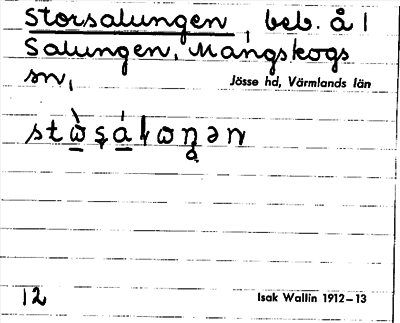 Storsalungen, beb. å 1
Salungen, Mangskogs
sn,
Jösse hd, Värmlands län
12
Isak Wallin 1912–13